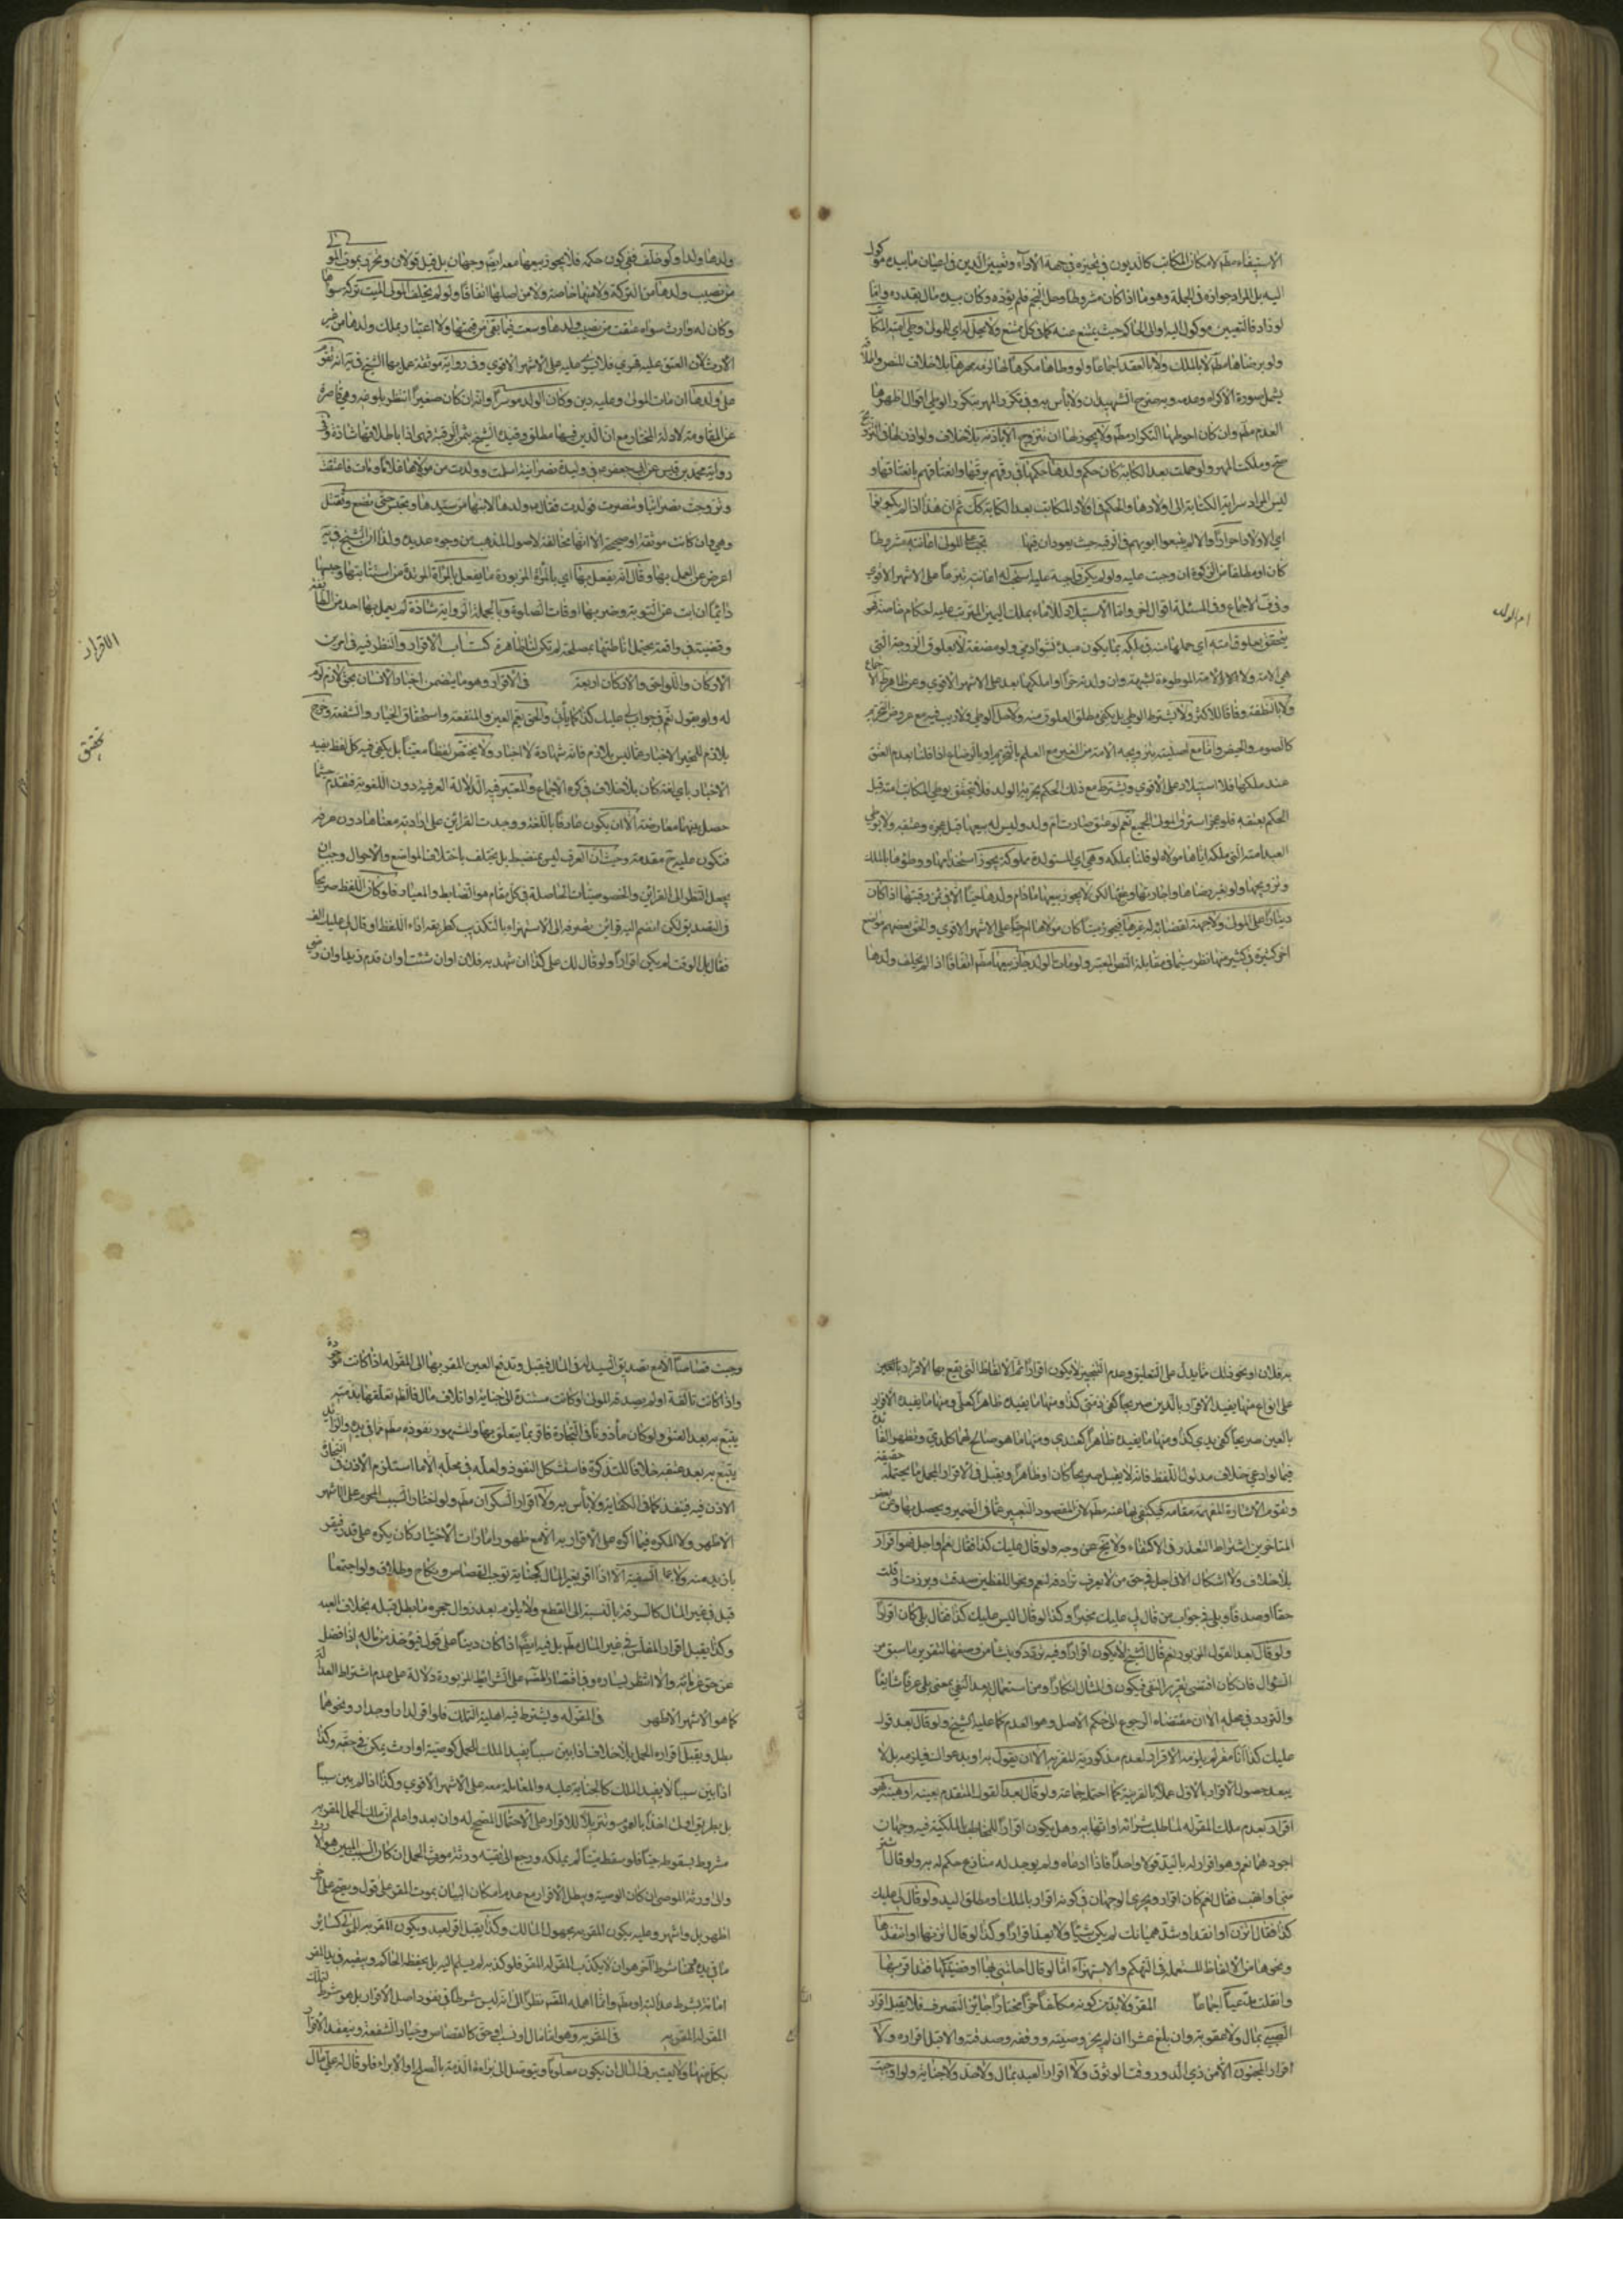 الاستيفاء مطلقا لامكان المكاتب كالديون في تخيره في جهة الاداء وتعيين الدين في اعيان ما بيده موكول
اليه بل المراد جوازه في الجملة وهو ما اذا كان مشروطا وحل النجم فلم يؤده وكان بيده مال بقدره واما
لو زاد فالتعيين موكول اليه او الى الحاكم حيث يمتنع عنه كما في كل ممتنع ولا يحل له اي للمولى وطي امته المكاتبة
ولو برضاها مطلقا لا بالملك ولا بالعقد اجماعا ولو وطاها مكرها لها لزمه مهرها بلا خلاف للنص واطلاقه
يشمل صورة الاكراه وعدمه وبه صرح الشهيدان ولا بأس به وفي تكرر المهر بتكرر الوطي اقوال اظهرها
العدم مطلقا وان كان احوطها التكرار مطلقا ولا يجوز لها ان تتزوج الا باذنه بلا خلاف ولو اذن لها في التزويج
صح وملكت المهر ولو حملت بعد الكتابة كان حكم ولدها حكمها في رقهم برقها وانعتاقهم بانعتاقها و
ليس المراد سراية الكتابة الى اولادها والحكم في اولاد المكاتب بعد الكتابة كك ثم ان هذا اذا لم يكونوا
اي الاولاد احرارا والا لم يتبعوا ابويهم في الرقية حيث يعودان فيها يجب على المولى اعانته مشروطا
كان او مطلقا من الزكوة ان وجبت عليه ولو لم يكن واجبة عليه استحب له اعانته تبرعا على الاشهر الاقوى
وفي المسئلة اقوال اخر واما الاستيلاد للاماء بملك اليمين المترتب عليه احكام خاصة فهو
يتحقق بعلوق امته اي حملها منه في ملكه بما يكون مبدء نشو ادمي ولو مضغة لا بعلوق الزوجة التي
هي الامة ولا الامة الموطوءة لشبهة وان ولدته حرا او ملكها بعد على الاشهر الاقوى وعن ظاهر الاجماع
ولا بالنطفة وفاقا للاكثر ولا يشترط الوطي بل يكفي مطلق العلوق منه ولا حل الوطي ولا ريب فيه مع عروض التحريم
كالصوم والحيض واما مع اصليته بتزويجه الامة من الغير مع العلم بالتحريم او بالرضاع اذا قلنا بعدم العتق
عند ملكها فلا استيلاد على الاقوى ويشترط مع ذلك الحكم بحرية الولد فلا يتحقق بوطي المكاتب امته قبل
الحكم بعتقه فلو عجز استرق المولى الجميع نعم لو عتق صارت ام ولد وليس له بيعها قبل عجزه وعتقه ولا بوطي
العبد امته التي ملكه اياها مولاه لو قلنا بملكه وهي اي المستولدة مملوكة يجوز استخدامها ووطؤها بالملك
وتزويجها ولو بغير رضاها واجارتها وعتقها لكن لا يجوز بيعها ما دام ولدها حيا الا في ثمن رقبتها اذا كان
دينا على المولى ولا جهة لقضائه له غيرها فيجوز ميتا كان مولاها ام حيا على الاشهر الاقوى والحق بعضهم مواضع
اخر كثيرة في كثير منها نظر سيما في مقابلة النص المعتبر ولو مات الولد جاز بيعها مطلقا اتفاقا اذا لم يخلف ولدها
ام الولد
ولدها ولدا ولو خلف ففي كون حكمه فلا يجوز بيعها معه ايضا وجهان بل قيل قولان وتتحرر بموت المولى
من نصيب ولدها من التركة ولا منها خاصة ولا من اصلها اتفاقا ولو لم يخلف المولى الميت تركة سواها
وكان له وارث سواه عتقت من نصيب ولدها وسعت فيما بقي من قيمتها ولا اعتبار بملك ولدها من غير
الارث لان العتق عليه قهري فلا يسري عليه على الاشهر الاقوى وفي رواية موثقة عمل بها الشيخ في ية انه تقوم
على ولدها ان مات المولى وعليه دين وكان الولد موسرا وانه ان كان صغيرا انتظر بلوغه وهي قاصرة
عن المقاومة لادلة المختار مع ان الدين فيها مطلق وقيده الشيخ بثمن الرقبة فهي اذا باطلاقها شاذة وفي
رواية محمد بن قيس عن ابي جعفر ع في وليدة نصرانية اسلمت وولدت من مولاها غلاما ومات فاعتقت
وتزوجت نصرانيا وتنصرت فولدت فقال ع ولدها لابنها من سيدها وتحبس حتى تضع وتقتل
وهي وان كانت موثقة او صحيحة الا انها مخالفة لاصول المذهب من وجوه عديدة ولذا ان الشيخ في ية
اعرض عن العمل بها وقال انه يفعل بها اي بالمرأة المزبورة ما يفعل بالمرأة المرتدة من استتابتها وحبسها
دائما ان ابت عن التوبة وضربها اوقات الصلوة وبالجملة الرواية شاذة لم يعمل بها احد من الطائفة
وقضية في واقعة يحتمل اناطتها بمصلحة لم تكن لنا ظاهرة كتاب الاقرار والنظر فيه في امرين
الاركان واللواحق والاركان اربعة في الاقرار وهو ما يتضمن اخبار الانسان بحق لازم له
له ولو بقول نعم في جواب لي عليك كذا كما يأتي والحق يعم العين والمنفعة واستحقاق الخيار والشفعة وخرج
بلازم للمخبر الاخبار عما ليس بلازم فانه شهادة لا اخبار ولا يختص لفظا معينا بل يكفي فيه كل لفظ يفيد
الاخبار باي لغة كان بلا خلاف في كره الاجماع والمعتبر فيه الدلالة العرفية دون اللغوية فتقدم حيثما
حصل فيهما معارضة الا ان يكون عارفا باللغة ووجدت القرائن على ارادته معناها دون عرفه
فتكون عليه ح مقدمة وحيث ان العرف ليس بمنضبط بل يختلف باختلاف المواضع والاحوال وجب ان
يجعل النظر الى القرائن والخصوصيات الحاصلة في كل مقام هو الضابط والمعيار فلو كان اللفظ صريحا
في التصديق لكن انضم اليه قرائن يصرفه الى الاستهزاء بالتكذيب كطريقة اداء اللفظ او قال لي عليك الف
فقال بل الوقت لم يكن اقرارا ولو قال لك علي كذا ان شهد به فلان او ان شئت او ان قدم زيد او ان رضي
الاقرار
تحقيق
به فلان او نحو ذلك مما يدل على التعليق وعدم التنجيز لا يكون اقرارا ثم الالفاظ التي يقع بها الاقرار بالعين
على انواع منها يفيد الاقرار بالدين صريحا كفي ذمتي كذا ومنها ما يفيده ظاهرا كعلي ومنها ما يفيد الاقرار
بالعين صريحا كفي يدي كذا ومنها ما يفيده ظاهرا كعندي ومنها ما هو صالح لهما كلدي وتظهر الفائدة
فيما لو ادعى خلاف مدلول اللفظ فانه لا يقبل صريحا كان او ظاهرا ويقبل في الاقرار المجمل ما يحتمله حقيقة
وتقوم الاشارة المفهمة مقامه فيكتفي بها عنه مطلقا لان المقصود التعبير عما في الضمير ويحصل بها وعن بعض
المتاخرين اشتراط التعذر في الاكتفاء ولا يخ عن وجه ولو قال عليك كذا فقال نعم او اجل فهو اقرار
بلا خلاف ولا اشكال الا في اجل في حق من لا يعرف ترادفه لنعم ونحو اللفظين صدقت وبررت او قلت
حقا او صدقا وبلى في جواب من قال لي عليك مخبرا وكذا لو قال اليس عليك كذا فقال بلى كان اقرارا
ولو قال بعد القول المزبور نعم قال الشيخ لا يكون اقرارا وفيه تردد ينشأ من وصفها لتقرير ما سبق من
السؤال فان كان اقتضى تقرير النفي فيكون في المثال انكارا ومن استعمال بعد النفي بمعنى بلى عرفا شايعا
والتردد في محله الا ان مقتضاه الرجوع الى حكم الاصل وهو العدم كما عليه الشيخ ولو قال بعد قوله
عليك كذا انا مقر لم يلزمه الاقرار لعدم مذكورية المقر به الا ان يقول به او بدعواك فيلزمه بل لا
يبعد حصول الاقرار بالاول عملا بالقرينة كما احتمله جماعة ولو قال بعد القول المتقدم بعنيه او هبنيه فهو
اقرار بعدم ملك المقر له لما طلب شرائه او اتهابه وهل يكون اقرارا للمخاطب بالملكية فيه وجهان
اجودهما نعم وهو اقرار له باليد قولا واحدا فاذا ادعاه ولم يوجد له منازع حكم له به ولو قال اشتر
مني او اتهب فقال نعم كان اقرار ويجري الوجهان في كونه اقرار بالملك او مطلق اليد ولو قال لي عليك
كذا فقال اتزن او انتقد او شد هميانك لم يكن شيئا ولا يعد اقرارا وكذا لو قال اتزنها او انتقدها
ونحوها من الالفاظ المستعملة في التهكم والاستهزاء اما لو قال احلتني بها او قضيتكها فقد اقر بها
وانقلب مدعيا اجماعا المقر ولا بد من كونه مكلفا حرا مختارا جائز التصرف فلا يقبل اقرار
الصبي بمال ولا عقوبة وان بلغ عشرا ان لم يجز وصيته ووقفه وصدقته والا قبل اقراره ولا
اقرار المجنون الا من ذي الدور وقت الوثوق ولا اقرار العبد بمال ولا حد ولا جناية ولو اوجبت
وجبت قصاصا الا مع تصديق السيد له في المال فيقبل وتدفع العين المقر بها الى المقر له اذا كانت موجودة
واذا كانت تالفة او لم يصدقه المولى او كانت مستندة الى جناية او اتلاف مال فالظاهر تعلقها بذمته
يتبع به بعد العتق ولو كان مأذونا في التجارة فاقر بما يتعلق بها والمشهور نفوذه مطلقا فيما في يده والزايد
يتبع به بعد عتقه خلافا للتذكرة فاستشكل النفوذ ولعله في محله الا ما استلزم الاذن في التجارة
الاذن فيه فينفذ كما في الكفاية ولا بأس به ولا اقرار السكران مطلقا ولو اختار السبب المحرم على الاشهر
الاظهر ولا المكره فيما اكره على الاقرار به الا مع ظهور امارات الاختيار كان يكره على قدر فيقر
بازيد منه ولا السفيه الا اذا اقر بغير المال كجناية توجب القصاص ونكاح وطلاق ولو اجتمعا
قبل في غير المال كالسرقة بالنسبة الى القطع ولا يلزمه بعد زوال حجره ما بطل قبله بخلاف العبد
وكذا يقبل اقرار المفلس في غير المال مطلقا بل فيه ايضا اذا كان دينا على قول فيؤخذ من ماله اذا فضل
عن حق غرمائه والا انتظر يساره وفي اقتصار المصنف على الشرائط المزبورة دلالة على عدم اشتراط العدالة
كما هو الاشهر الاظهر في المقر له ويشترط فيه اهلية التملك فلو اقر لدار او جدار ونحوهما
بطل ويقبل اقراره للحمل بلا خلاف اذا بين سببا يفيد الملك للحمل كوصية او ارث يمكن في حقه وكذا
اذا بين سببا لا يفيد الملك كالجناية عليه والمعاملة معه على الاشهر الاقوى وكذا اذا لم يبين سببا
بل بطريق اولى اخذا بالعموم وتنزيلا للاقرار على الاحتمال المصحح له وان بعد واعلم ان ملك الحمل المقر به
مشروط بسقوط حيا فلو سقط ميتا لم يملكه ورجع الى بقية ورثة مورث الحمل ان كان السبب المبين هو الارث
والى ورثة الموصي ان كان الوصية ويبطل الاقرار مع عدم امكان البيان بموت المقر على قول ويصح على اخر
اظهر بل واشهر وعليه يكون المقر به مجهول المالك وكذا يقبل اقر لعبد ويكون المقر به للمولى كسائر
ما في يده وهنا شرط آخر هو ان لا يكذب المقر له المقر فلو كذبه لم يسلم اليه بل يحفظه الحاكم او يبقيه في يد المقر
امانة بشرط عدالته او مطلقا وانما اهمله المصنف نظرا الى انه ليس شرطا في نفوذ اصل الاقرار بل هو شرط لتملك
المقر له المقر به في المقر به وهو اما مال او نسب او حق كالقصاص وخيار الشفعة وينعقد الاقرار
بكل منها ولا يعتبر في المال ان يكون معلوما ويتوصل الى براءة الذمة بالصلح او الابراء فلو قال له علي مال